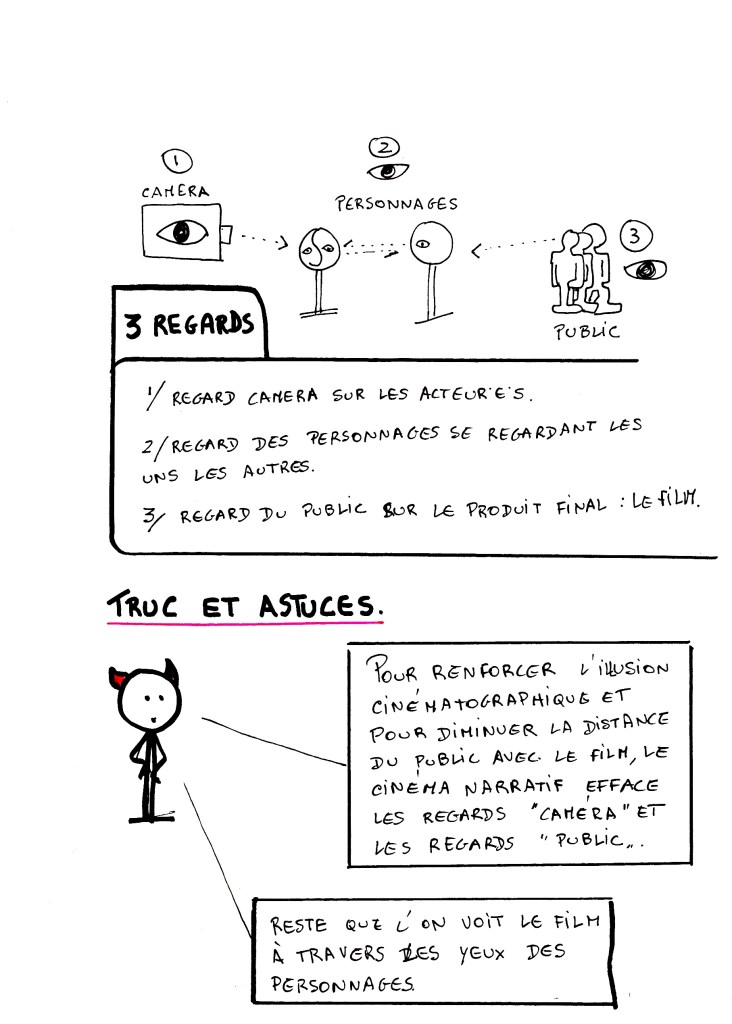 1
CAMÉRA
2
PERSONNAGES
3
PUBLIC
3 REGARDS
1/ REGARD CAMERA SUR LES ACTEUR·E·S.
2/ REGARD DES PERSONNAGES SE REGARDANT LES
UNS LES AUTRES.
3/ REGARD DU PUBLIC SUR LE PRODUIT FINAL : LE FILM.
TRUC ET ASTUCES.
POUR RENFORCER L'ILLUSION
CINÉMATOGRAPHIQUE ET
POUR DIMINUER LA DISTANCE
DU PUBLIC AVEC LE FILM, LE
CINÉMA NARRATIF EFFACE
LES REGARDS "CAMÉRA" ET
LES REGARDS "PUBLIC„.
RESTE QUE L'ON VOIT LE FILM
À TRAVERS LES YEUX DES
PERSONNAGES.